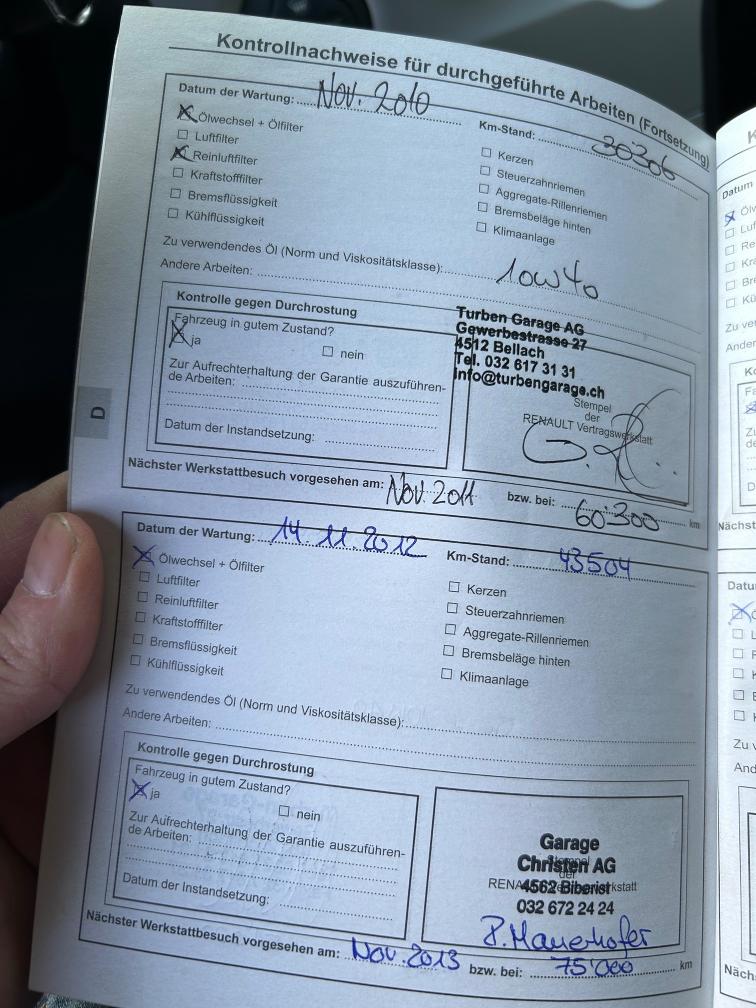 Kontrollnachweise für durchgeführte Arbeiten (Fortsetzung)
Datum der Wartung: Nov. 2010 Km-Stand: 30306
☒ Ölwechsel + Ölfilter
☐ Luftfilter
☒ Reinluftfilter
☐ Kraftstofffilter
☐ Bremsflüssigkeit
☐ Kühlflüssigkeit
☐ Kerzen
☐ Steuerzahnriemen
☐ Aggregate-Rillenriemen
☐ Bremsbeläge hinten
☐ Klimaanlage
Zu verwendendes Öl (Norm und Viskositätsklasse): 10W40
Andere Arbeiten:
Kontrolle gegen Durchrostung
Fahrzeug in gutem Zustand?
☒ ja ☐ nein
Zur Aufrechterhaltung der Garantie auszuführen-
de Arbeiten:
Datum der Instandsetzung:
Turben Garage AG
Gewerbestrasse 27
4512 Bellach
Tel. 032 617 31 31
info@turbengarage.ch
Stempel
der
RENAULT Vertragswerkstatt
Nächster Werkstattbesuch vorgesehen am: Nov. 2011 bzw. bei: 60'300 km
D
Datum der Wartung: 14 11.2012 Km-Stand: 43504
☒ Ölwechsel + Ölfilter
☐ Luftfilter
☐ Reinluftfilter
☐ Kraftstofffilter
☐ Bremsflüssigkeit
☐ Kühlflüssigkeit
☐ Kerzen
☐ Steuerzahnriemen
☐ Aggregate-Rillenriemen
☐ Bremsbeläge hinten
☐ Klimaanlage
Zu verwendendes Öl (Norm und Viskositätsklasse):
Andere Arbeiten:
Kontrolle gegen Durchrostung
Fahrzeug in gutem Zustand?
☒ ja ☐ nein
Zur Aufrechterhaltung der Garantie auszuführen-
de Arbeiten:
Datum der Instandsetzung:
Garage
Christen AG
4562 Biberist
032 672 24 24
P. Mauerhofer
Nächster Werkstattbesuch vorgesehen am: Nov. 2013 bzw. bei: 75'000 km